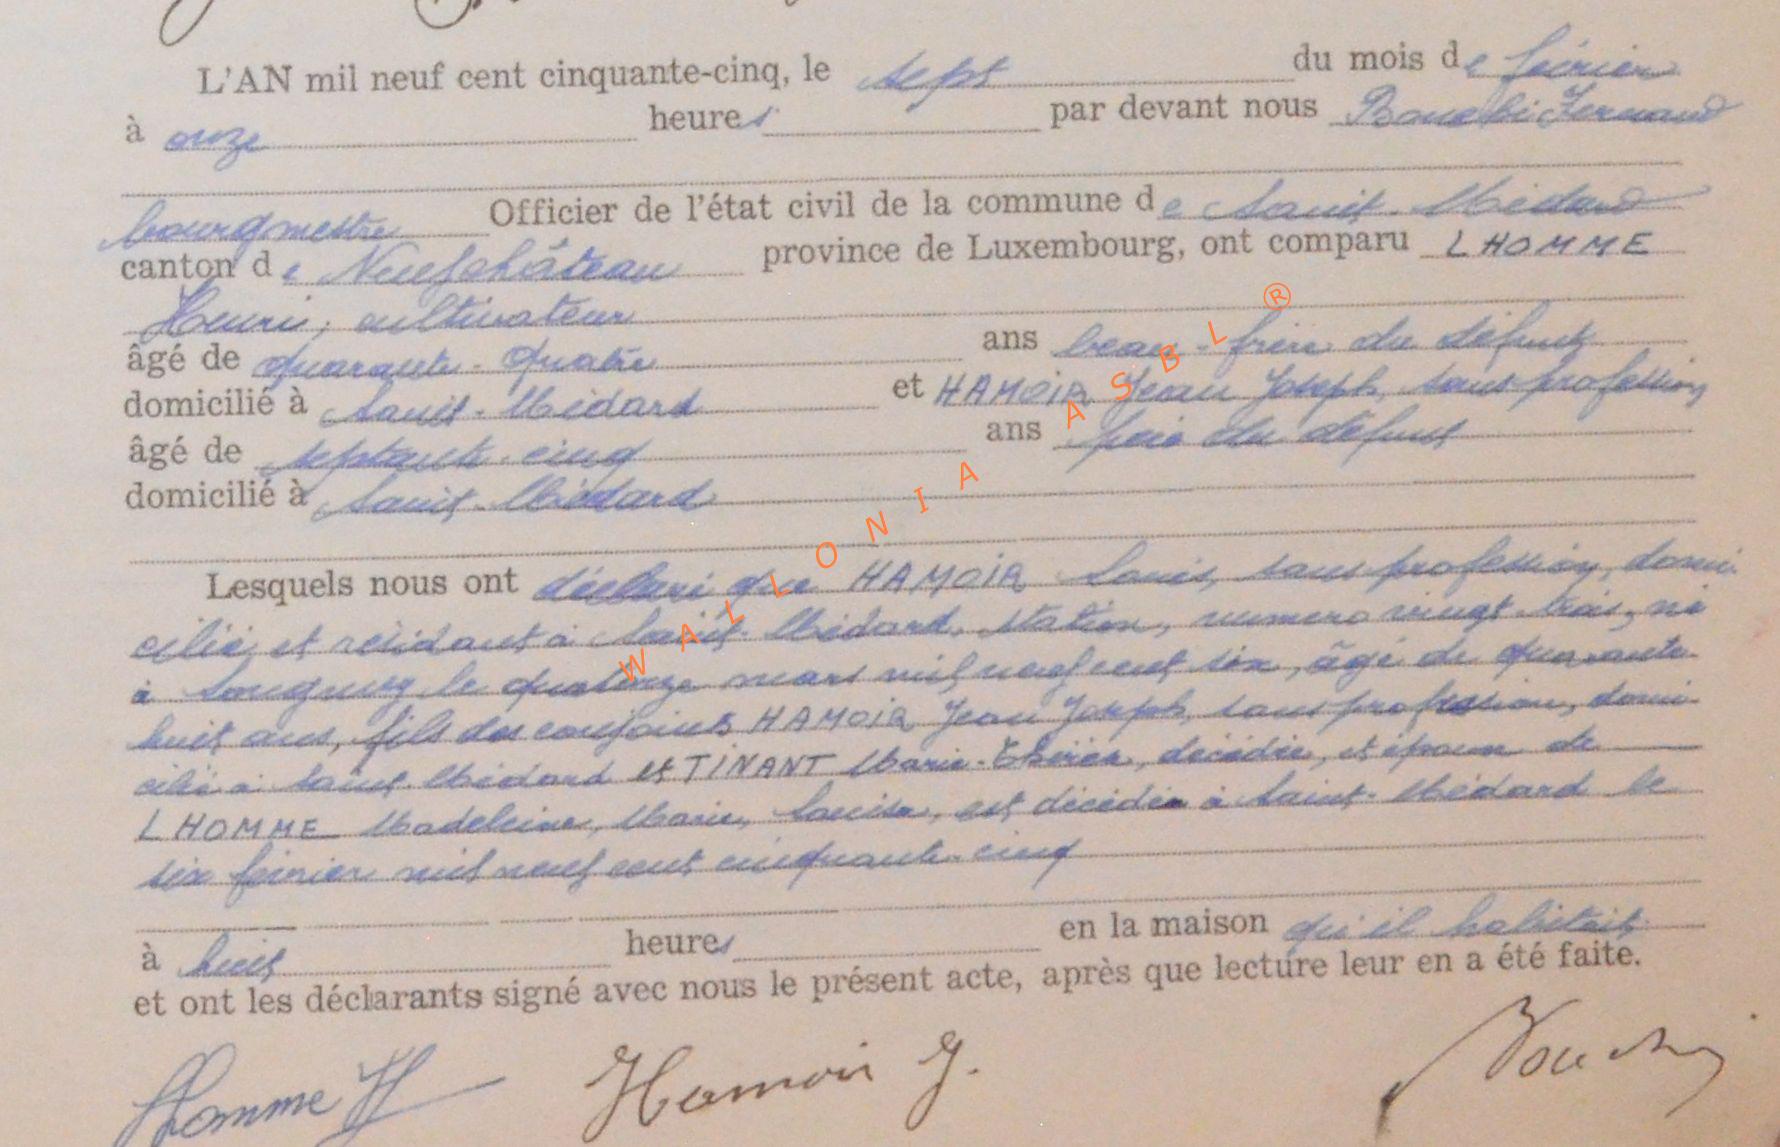 L'AN mil neuf cent cinquante-cinq, le sept du mois de février
à onze heures par devant nous Fernand
bourgmestre Officier de l'état civil de la commune de Saint-Médard
canton de Neufchâteau province de Luxembourg, ont comparu LHOMME
Henri, cultivateur
âgé de quarante-quatre ans beau-frère du défunt
domicilié à Saint-Médard et HAMOIR Jean Joseph, sans profession
âgé de septante-cinq ans père du défunt
domicilié à Saint-Médard
Lesquels nous ont déclaré que HAMOIR Louis, sans profession, domi-
cilié et résidant à Saint-Médard, station, numero vingt trois, né
à le quatorze mars mil neuf cent six, âgé de quarante-
huit ans, fils des conjoints HAMOIR Jean Joseph, sans profession, domi-
cilié à Saint-Médard et TINANT Marie-Thérèse, décédée, et époux de
LHOMME Madeleine, Marie, Louise, est décédé à Saint-Médard le
six février mil neuf cent cinquante-cinq
à huit heures en la maison qu'il habitait
et ont les déclarants signé avec nous le présent acte, après que lecture leur en a été faite.
Lhomme H Hamoir J.
WALLONIA ASBL ®